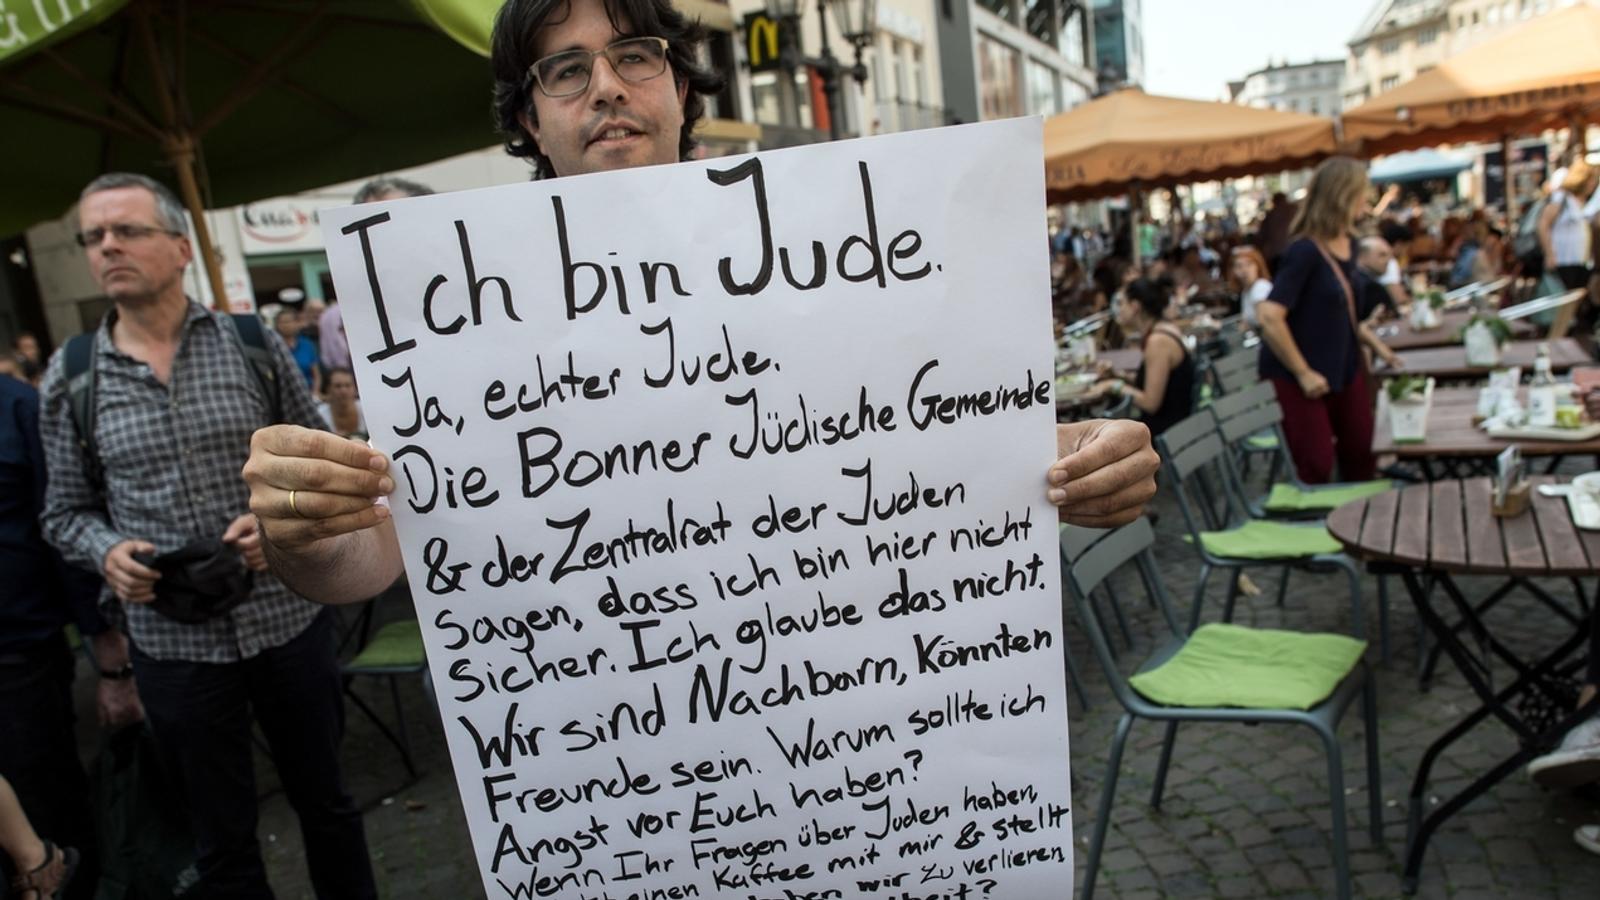 Ich bin Jude.
Ja, echter Jude.
Die Bonner Jüdische Gemeinde
& der Zentralrat der Juden
sagen, dass ich bin hier nicht
sicher. Ich glaube das nicht.
Wir sind Nachbarn, könnten
Freunde sein. Warum sollte ich
Angst vor Euch haben?
Wenn Ihr Fragen über Juden haben,
einen Kaffee mit mir & stellt
haben wir zu verlieren